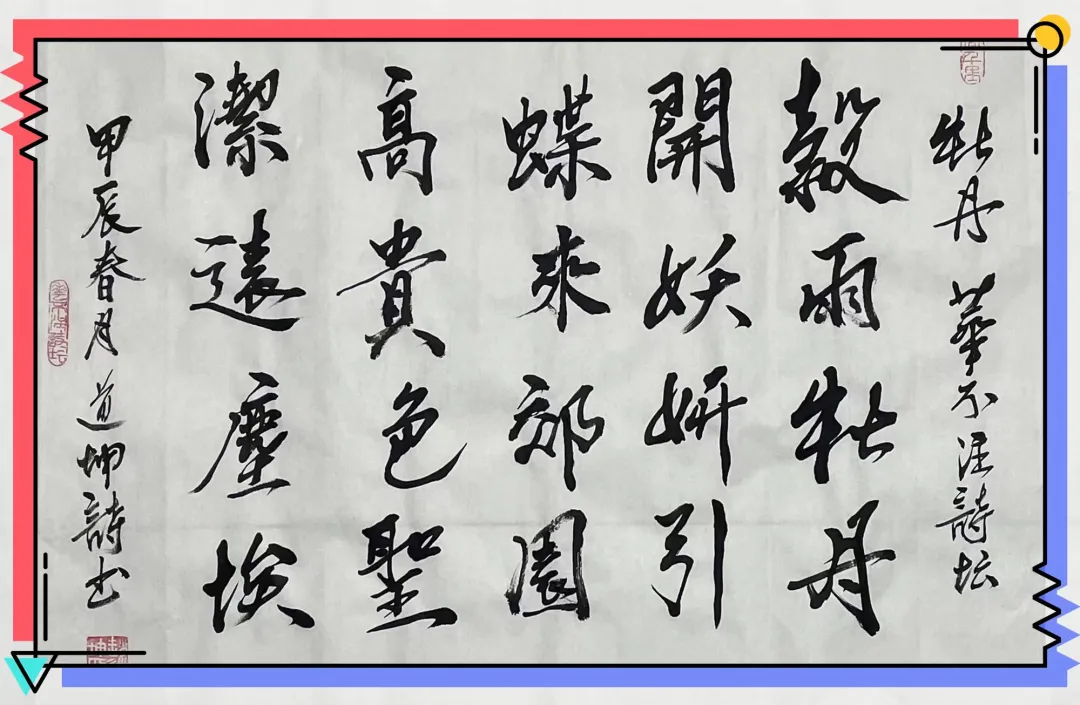 牡丹 華不注詩坛
穀雨牡丹
開妖妍引
蝶來郊園
高貴色聖
潔遠塵埃
甲辰春月道坤詩书